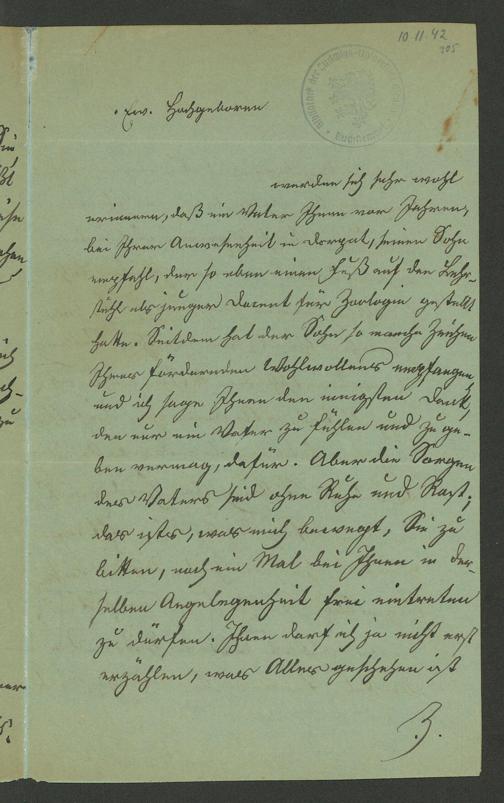 10.11.42
205
Ew. Hochgeboren
werden sich sehr wohl
erinnern, daß ein Vater Ihnen vor Jahren,
bei Ihrer Anwesenheit in Dorpat, seinen Sohn
empfahl, der so eben einen Fuß auf den Lehr-
stuhl als junger Docent für Zoologie gestellt
hatte. Seitdem hat der Sohn so manche Zeichen
Ihres fördernden Wohlwollens empfangen
und ich sage Ihnen den innigsten Dank,
den nur ein Vater zu fühlen und zu ge-
ben vermag, dafür. Aber die Sorgen
des Vaters sind ohne Ruhe und Rast;
das ists, was mich bewegt, Sie zu
bitten, noch ein Mal bei Ihnen in der-
selben Angelegenheit frei eintreten
zu dürfen. Ihnen darf ich ja nicht erst
erzählen, was Alles geschehen ist